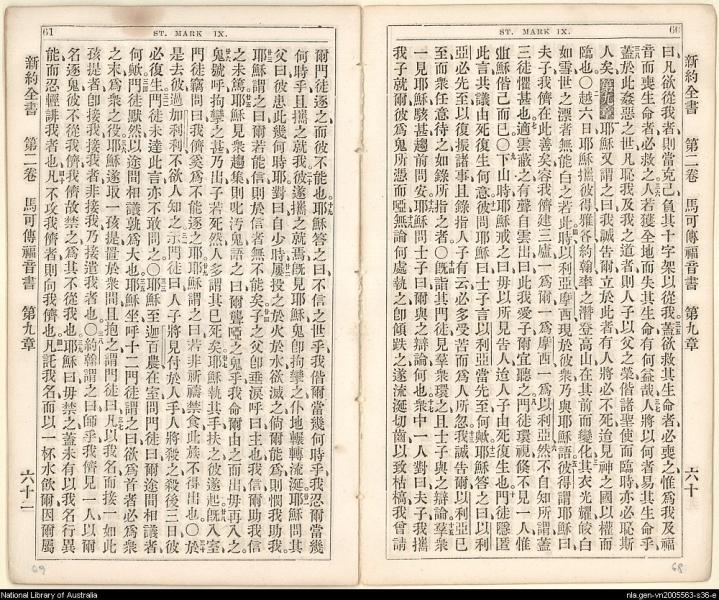 60
ST. MARK IX.
新約全書 第二卷 馬可傳福音書 第九章 六十
曰凡欲從我者則當克己負其十字架以從我蓋欲救其生命者必喪之惟爲我及福
音而喪生命者必救之人若獲全地而失其生命有何益哉人將以何者易其生命乎
蓋於此姦惡之世凡恥我及我之道者則人子以父之榮偕諸聖使而臨時亦必恥斯
人矣第九章耶穌又謂之曰我誠告爾立於此者有人將必不死迨見神之國以權而
臨也〇越六日耶穌攜彼得雅各約翰率之潛登高山在其前而變化其衣光耀皎白
如雪世之漂者無能白之若此時以利亞摩西現於彼衆乃與耶穌語彼得謂耶穌曰
夫子我儕在此善矣容我儕建三廬一爲爾一爲摩西一爲以利亞然不自知所謂蓋
三徒懼甚也適雲蔽之有聲自雲出曰此我愛子爾宜聽之門徒環視倐不見一人惟
耶穌偕己而已〇下山時耶穌戒之曰毋以所見告人迨人子由死復生也門徒隱匿
此言共議由死復生何意彼問耶穌曰士子言以利亞當先至何歟耶穌答之曰以利
亞必先至以復振諸事且錄指人子有云必多受苦而爲人所忽我誠告爾以利亞已
至而衆任意待之如錄所指之者〇旣詣其門徒見羣衆環之且士子與之辯論羣衆
一見耶穌駭甚趨前問安耶穌問士子曰爾與之辯論何也衆中一人對曰夫子我攜
我子就爾彼爲鬼所憑而啞無論何處執之卽傾跌之遂流涎切齒以致枯槁我曾請
68
61
ST. MARK IX.
爾門徒逐之而彼不能也耶穌答之曰不信之世乎我偕爾當幾何時乎我忍爾當幾
何時乎且攜之就我彼遂攜之就焉旣見耶穌鬼卽拘攣之仆地輾轉流涎耶穌問其
父曰彼患此幾何時耶對曰自少時屢投之於火於水欲滅之倘爾能爲則憫我助我
耶穌謂之曰爾若能信則於信者無不能矣子之父卽垂淚呼曰主也我信爾助我信
之未篤耶穌見衆趨集則叱污鬼語之曰爾聾啞之鬼乎我命爾由之而出毋再入之
鬼號呼拘攣之甚乃出子若死然人多謂其已死矣耶穌執其手扶之彼遂起旣入室
門徒竊問曰我儕奚爲不能逐之耶穌謂之曰若非祈禱禁食此族不得出也〇於
是去彼過加利利不欲人知之示門徒曰人子將見付於人手人將殺之殺後三日彼
必復生門徒未達此言亦不敢問之〇耶穌至迦百農在室問門徒曰爾途間相議者
何歟門徒默然以途間相議孰爲大也耶穌坐呼十二門徒謂之曰欲爲首者必爲衆
之末爲衆之役耶穌遂取一孩提置於衆間且抱之謂門徒曰凡以我名而接一如此
孩提者卽接我接我者非接我乃接遣我者也〇約翰謂之曰師乎我儕見一人以爾
名逐鬼彼不從我儕我儕故禁之爲其不從我也耶穌曰毋禁之蓋未有以我名行異
能而忍輕誹我者也凡不攻我儕者則向我儕也凡託我名而以一杯水飲爾因爾屬
新約全書 第二卷 馬可傳福音書 第九章 六十一
69
National Library of Australia
nla.gen-vn2005563-s36-e